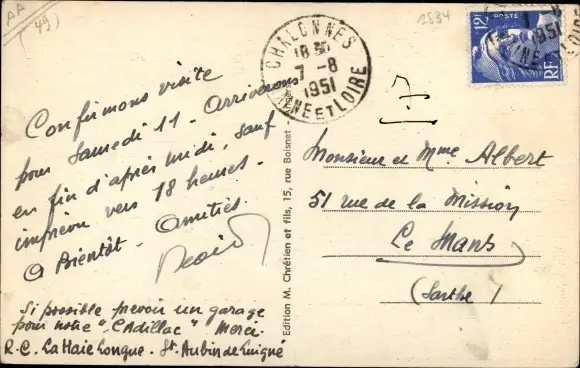 AA
(49)
2534
CHALONNES
18 30
7-8
1951
MAINE ET LOIRE
12F POSTES
RF
Confirmons visite
pour Samedi 11 - Arriverons
en fin d'après midi, sauf
imprévu vers 18 heures -
A Bientôt - Amitiés
Si possible prévoir un garage
pour notre "Cadillac" Merci -
R.C. La Haie Longue - St. Aubin de Luigné
Edition M. Chrétien et fils, 15, rue Boisnet
Monsieur et Mme Albert
51 rue de la Mission
Le Mans
(Sarthe)